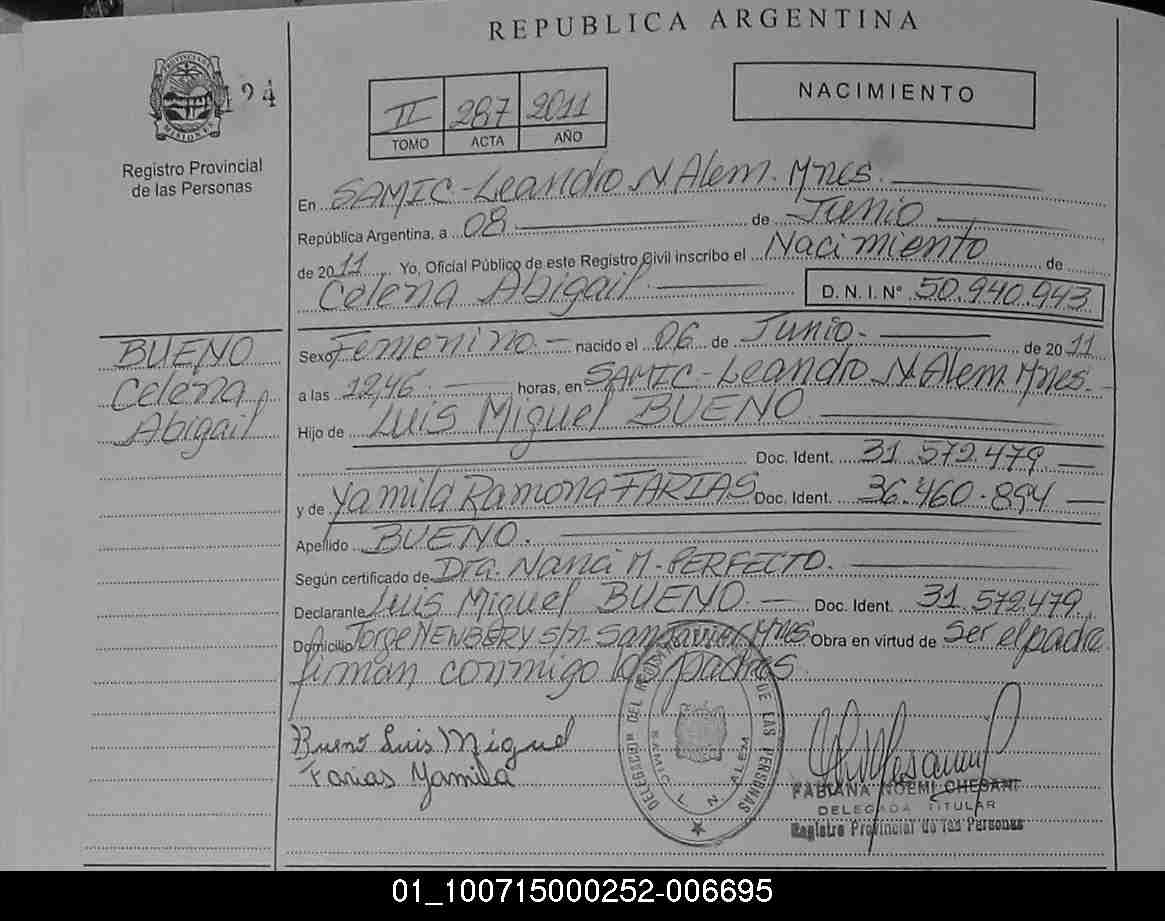 REPUBLICA ARGENTINA
PROVINCIA DE MISIONES
194
Registro Provincial
de las Personas
II 287 2011
TOMO ACTA AÑO
NACIMIENTO
En SAMIC-Leandro N Alem. Mnes.
República Argentina, a 08 de Junio
de 2011 Yo, Oficial Público de este Registro Civil inscribo el Nacimiento de
Celena Abigail D. N. I. N° 50.940.943
BUENO
Celena
Abigail
Sexo Femenino - nacido el 06 de Junio- de 2011
a las 12,46 horas, en SAMIC-Leandro N Alem Mnes.
Hijo de Luis Miguel BUENO
Doc. Ident. 31.572.479
y de Yamila Ramona FARIAS Doc. Ident. 36.460.894
Apellido BUENO.
Según certificado de Dra. Nanci M. PERFECTO.
Declarante Luis Miguel BUENO. Doc. Ident. 31.572.479
Domicilio Jorge NEWBERY s/n. San Javier Mnes Obra en virtud de Ser el padre
firman conmigo los padres.
Bueno Luis Miguel
Farias Yamila
DELEGACION DEL REGISTRO DE LAS PERSONAS
SAMIC L. N. ALEM
FABIANA NOEMI CHESANI
DELEGADA TITULAR
Registro Provincial de las Personas
01_100715000252-006695